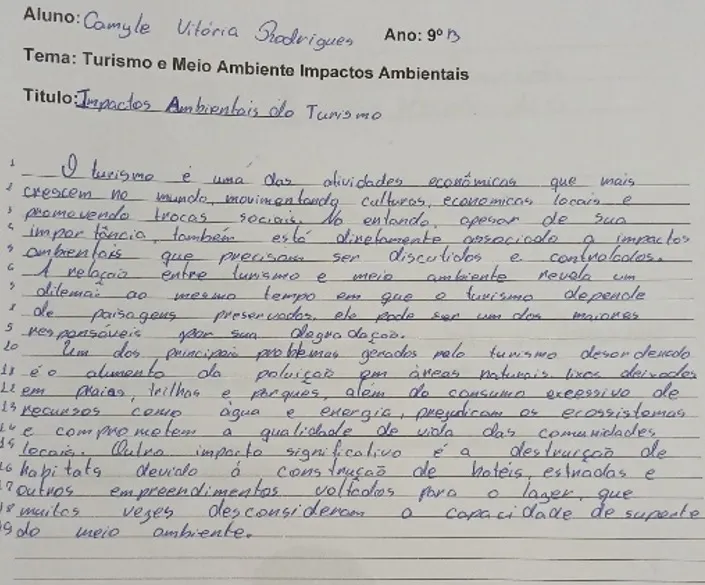 Aluno: Camyle Vitória Rodrigues Ano: 9º B
Tema: Turismo e Meio Ambiente Impactos Ambientais
Titulo: Impactos Ambientais do Turismo
1 O turismo é uma das atividades econômicas que mais
2 crescem no mundo, movimentando culturas, economicas locais e
3 promovendo trocas sociais. No entando, apesar de sua
4 importância, também está diretamente associado a impactos
5 ambientais que precisam ser discutidos e controlados.
6 A relação entre turismo e meio ambiente revela um
7 dilema: ao mesmo tempo em que o turismo depende
8 de paisagens preservadas, ele pode ser um dos maiores
9 responsáveis por sua degradação.
10 Um dos principais problemas gerados pelo turismo desordenado
11 é o aumento da poluição em áreas naturais. lixos deixados
12 em praias, trilhas e parques, além do consumo excessivo de
13 recursos como água e energia, prejudicam os ecossistemas
14 e comprometem a qualidade de vida das comunidades
15 locais. Outro impacto significativo é a destruição de
16 habitats devido á construção de hotéis, estradas e
17 outros empreendimentos voltados para o lazer, que
18 muitas vezes desconsideram a capacidade de suporte
19 do meio ambiente.